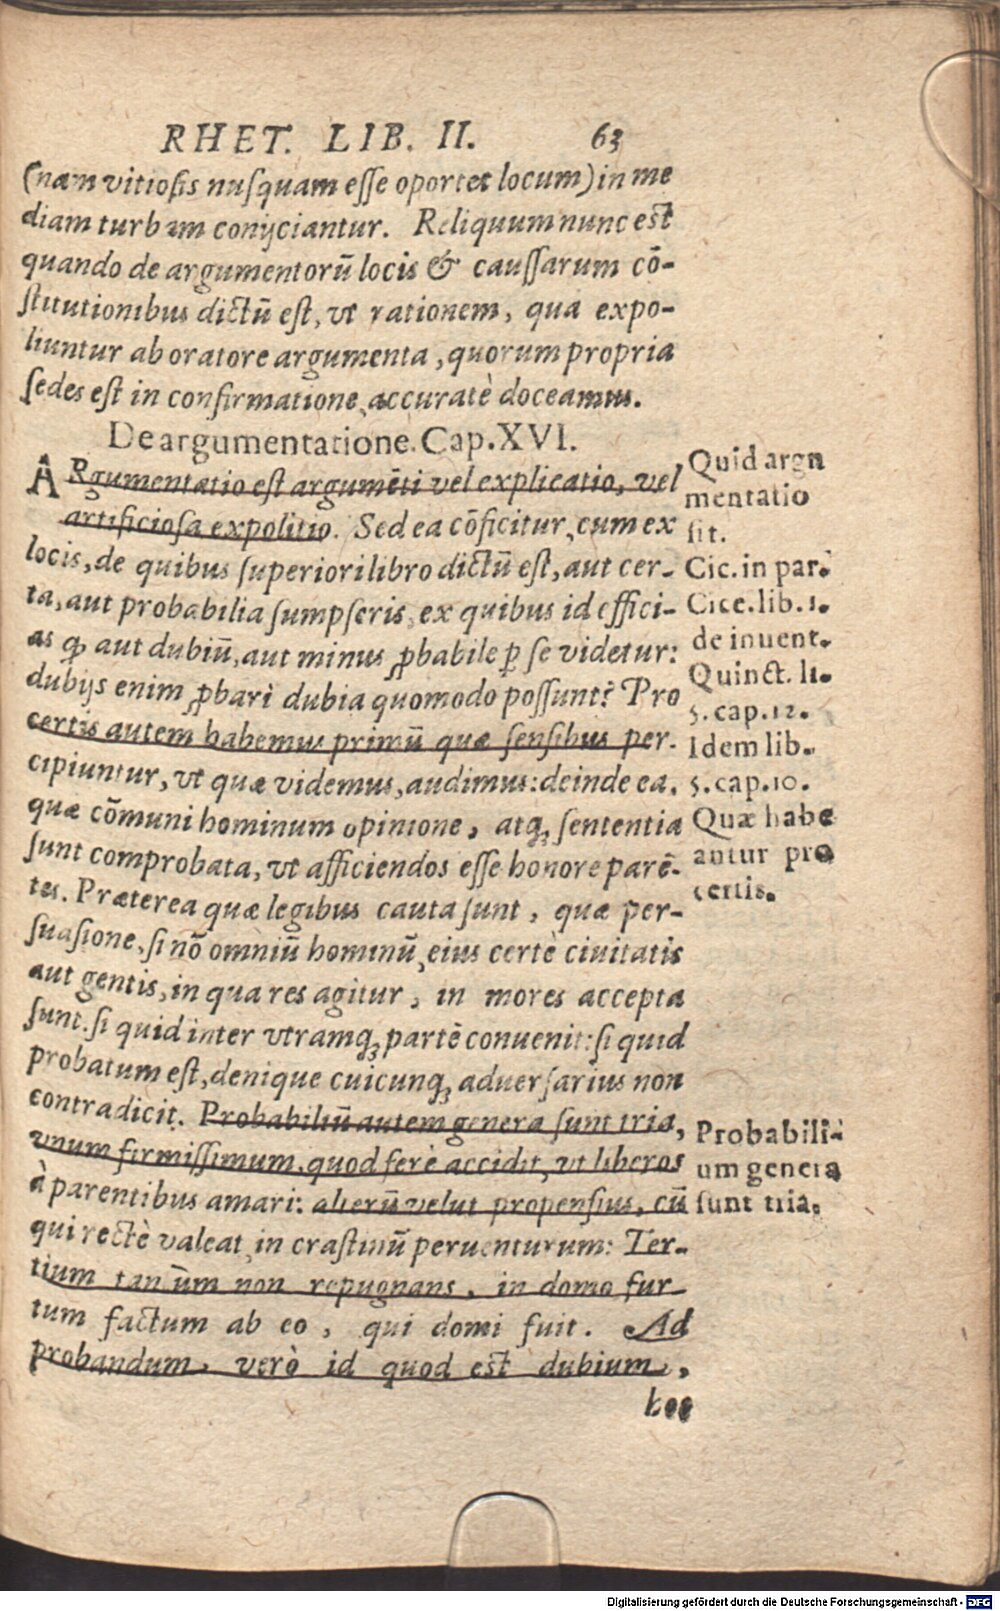 RHET. LIB. II. 63
(nam vitiosis nusquam esse oportet locum) in me
diam turbam conijciantur. Reliquum nunc est
quando de argumentorū locis & caussarum cō-
stitutionibus dictū est, vt rationem, qua expo-
liuntur ab oratore argumenta, quorum propria
sedes est in confirmatione, accuratè doceamus.
De argumentatione. Cap. XVI.
ARgumentatio est argumēti vel explicatio, vel
artificiosa expolitio. Sed ea cōficitur, cum ex
locis, de quibus superiori libro dictū est, aut cer-
ta, aut probabilia sumpseris, ex quibus id effici-
as ꝙ aut dubiū, aut minus ꝓbabile ꝑ se videtur:
dubijs enim ꝓbari dubia quomodo possunt? Pro
certis autem habemus primū quæ sensibus per-
cipiuntur, vt quæ videmus, audimus: deinde ea,
quæ cōmuni hominum opinione, atq; sententia
sunt comprobata, vt afficiendos esse honore parē-
tes. Præterea quæ legibus cauta sunt, quæ per-
suasione, si nō omniū hominū, eius certè ciuitatis
aut gentis, in qua res agitur, in mores accepta
sunt. si quid inter vtramq; partē conuenit: si quid
probatum est, denique cuicunq; aduersarius non
contradicit. Probabiliū autem genera sunt tria,
vnum firmissimum, quod ferè accidit, vt liberos
à parentibus amari: alterū velut propensius, cū
qui rectè valeat in crastinū peruenturum: Ter-
tium tantūm non repugnans, in domo fur
tum factum ab eo, qui domi fuit. Ad
probandum, verò id quod est dubium,
hoc
Quid argu
mentatio
sit.
Cic. in par.
Cice. lib. 1.
de inuent.
Quinct. li.
5. cap. 12.
Idem lib.
5. cap. 10.
Quæ habe
antur pro
certis.
Probabili-
um genera
sunt tria.
Digitalisierung gefördert durch die Deutsche Forschungsgemeinschaft - DFG